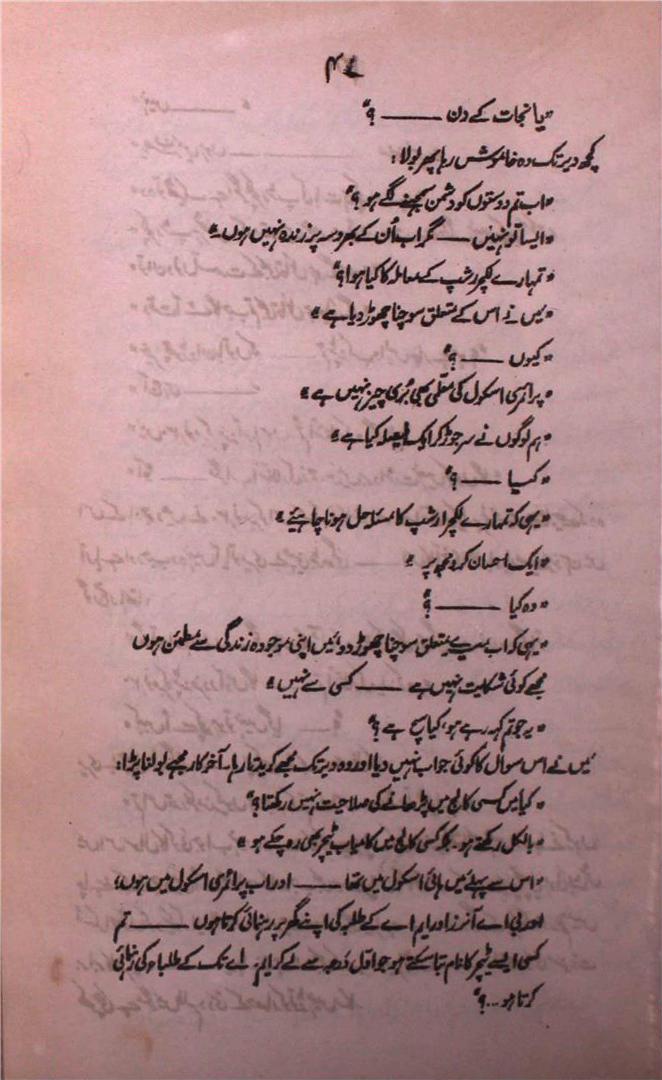 ۴۷
"یا نجات کے دن ——— ؟"
کچھ دیر تک وہ خاموش رہا پھر بولا:
"اب تم دوستوں کو دشمن سمجھنے لگے ہو؟"
"ایسا تو نہیں —— مگر اب اُن کے بھروسہ پر زندہ نہیں ہوں۔"
"تمہارے لکچرر شپ کے معاملہ کا کیا ہوا؟"
"میں نے اس کے متعلق سوچنا چھوڑ دیا ہے۔"
"کیوں —— ؟"
"پرائمری اسکول کی معلمی بھی بُری چیز نہیں ہے۔"
"ہم لوگوں نے سر جوڑ کر ایک فیصلہ کیا ہے۔"
"کیا —— ؟"
"یہی کہ تمہارے لکچرار شپ کا مسئلہ حل ہونا چاہیئے۔"
"ایک احسان کرو مجھ پر۔"
"وہ کیا ——— ؟"
"یہی کہ اب میرے متعلق سوچنا چھوڑ دو، میں اپنی موجودہ زندگی سے مطمئن ہوں
مجھے کوئی شکایت نہیں ہے —— کسی سے نہیں۔"
"یہ جو تم کہہ رہے ہو، کیا سچ ہے؟"
میں نے اس سوال کا کوئی جواب نہیں دیا اور وہ دیر تک مجھے کریدتا رہا۔ آخر کار مجھے بولنا پڑا:
"کیا میں کسی کالج میں پڑھانے کی صلاحیت نہیں رکھتا؟"
"بالکل رکھتے ہو۔ بلکہ کسی کالج میں کامیاب ٹیچر بھی رہ چکے ہو۔"
"اس سے پہلے میں ہائی اسکول میں تھا —— اور اب پرائمری اسکول میں ہوں؛
اور بی اے آنرز اور ایم اے کے طلبہ کی اپنے گھر پر رہنمائی کرتا ہوں ——— تم
کسی ایسے ٹیچر کا نام بتا سکتے ہو جو اوّل درجہ سے لے کر ایم۔ اے تک کے طلباء کی رہنمائی
کرتا ہو...؟"